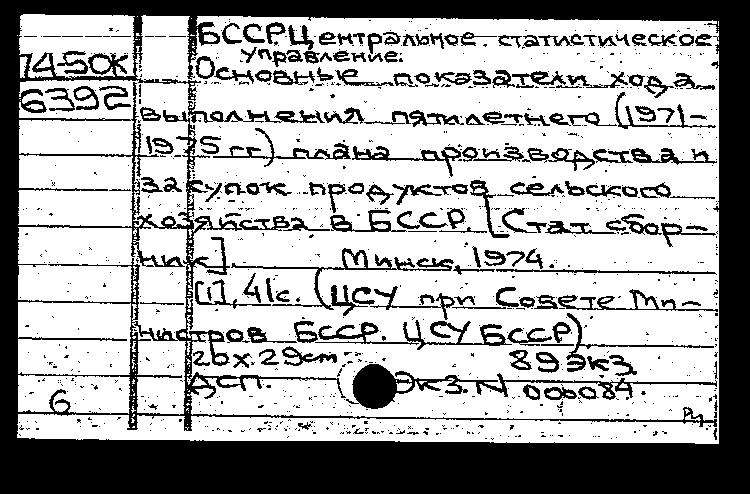 БССР. Центральное статистическое
управление.
74-50К
Основные показатели хода
6392
выполнения пятилетнего (1971-
1975 гг) плана производства и
закупок продуктов сельского
хозяйства в БССР. [Стат сбор-
ник]. Минск, 1974.
[1], 41с. (ЦСУ при Совете Ми-
нистров БССР. ЦСУ БССР)
20х.29см 89 экз.
ДСП. Экз. N 000084.
6